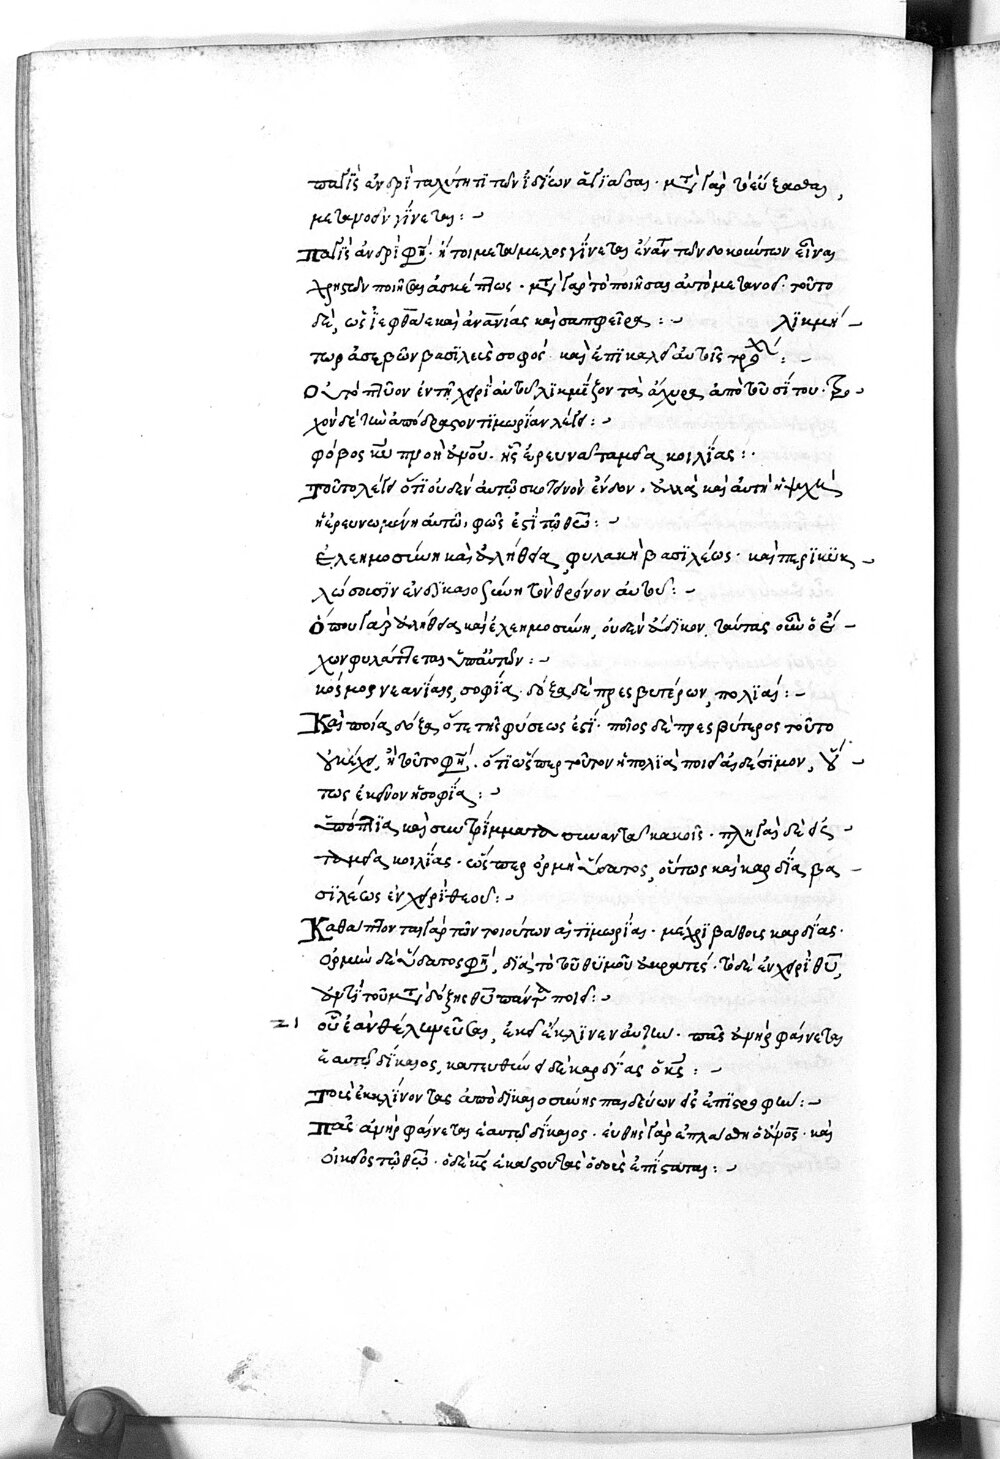 παγὶς ἀνδρὶ ταχύ τι τῶν ἰδίων ἁγιάσαι· μετὰ γὰρ τὸ εὔξασθαι,
μετανοεῖν γίνεται:
Παγὶς ἀνδρὶ φησὶ· ἤτοι μεταμελος γίνεται ἐνίων τῶν δοκούντων εἶναι
χρηστῶν ποιῆσαι ἀσκέπτως· μετὰ γὰρ τὸ ποιῆσαι αὐτὸ μετανοεῖ· τοῦτο
δὲ, ὡς ἰεφθάε καὶ ἀνανίας καὶ σαπφείρα: λικμή
τωρ ἀσεβῶν βασιλεὺς σοφός· καὶ ἐπικαλεῖ αὐτοῖς τροχόν:
Ὁ τὸ πτύον ἐν τῇ χειρὶ αὐτοῦ λικμίζον τὰ ἄχυρα ἀπὸ τοῦ σίτου· τρο
χὸν δὲ τὴν ἀπόδρασον τιμωρίαν λέγει:
φόβος κυρίου πνοὴ ἀνθρώπου· ἧς ἐρευνᾶ ταμεῖα κοιλίας:
Τοῦτο λέγει ὅτι οὐδὲν αὐτῷ σκοτεινὸν ἔνδον· ἀλλὰ καὶ αὐτὴ ἡ ψυχὴ
ἡ ἐρευνωμένη αὐτῷ, φῶς ἐστὶ τῷ θεῷ:
Ἐλεημοσύνη καὶ ἀλήθεια, φυλακὴ βασιλέως· καὶ περικυκ
λώσουσιν ἐν δικαιοσύνῃ τὸν θρόνον αὐτοῦ:
Ὅπου γὰρ ἀλήθεια καὶ ἐλεημοσύνη, οὐδὲν ἄδικον, ταύτας οὖν ὁ ἔ
χων φυλάττεται ὑπ' αὐτῶν:
κόσμος νεανίαις, σοφία· δόξα δὲ πρεσβυτέρων, πολιαί:
Καὶ ποία δόξα ὅτε τῆς φύσεως ἐστί· ποῖος δὲ πρεσβύτερος τοῦτο
οὐκ ἔχει, ἢ τοῦτο φησὶ, ὅτι ὥσπερ τοῦτον ἡ πολιὰ ποιεῖ αἰδέσιμον, οὕ
τως ἐκεῖνον ἡ σοφία:
ὑπώπια καὶ συντρίμματα συναντᾶ κακοῖς· πληγαὶ δὲ εἰς
ταμεῖα κοιλίας· ὥσπερ ὁρμὴ ὕδατος, οὕτως καὶ καρδία βα
σιλέως ἐν χειρὶ θεοῦ:
Καθάπτονται γὰρ τῶν τοιούτων αἱ τιμωρίαι· μέχρι βάθους καρδίας·
ὁρμὴν δὲ ὕδατος φησὶ, διὰ τὸ τοῦ θυμοῦ ἀκρατές· τὸ δὲ ἐν χειρὶ θεοῦ,
ἀντὶ τοῦ μετὰ δόξης θεοῦ πάντα ποιεῖ:
οὗ ἐὰν θέλων νεῦσαι, ἐκεῖ ἔκλινεν αὐτὴν· πᾶς ἀνὴρ φαίνεται
ἑαυτῷ δίκαιος, κατευθύνει δὲ καρδίας ὁ κύριος:
Τοὺς ἐκκλίνοντας ἀπὸ δικαιοσύνης παιδεύων εἰς ἐπιστροφήν:
Πᾶς ἀνὴρ φαίνεται ἑαυτῷ δίκαιος· εὐθὴς γὰρ ἐπλάσθη ὁ ἄνθρωπος· καὶ
οἰκεῖος τῷ θεῷ· ὁ δὲ κύριος ἑκάστου τὰς ὁδοὺς ἐπίσταται: